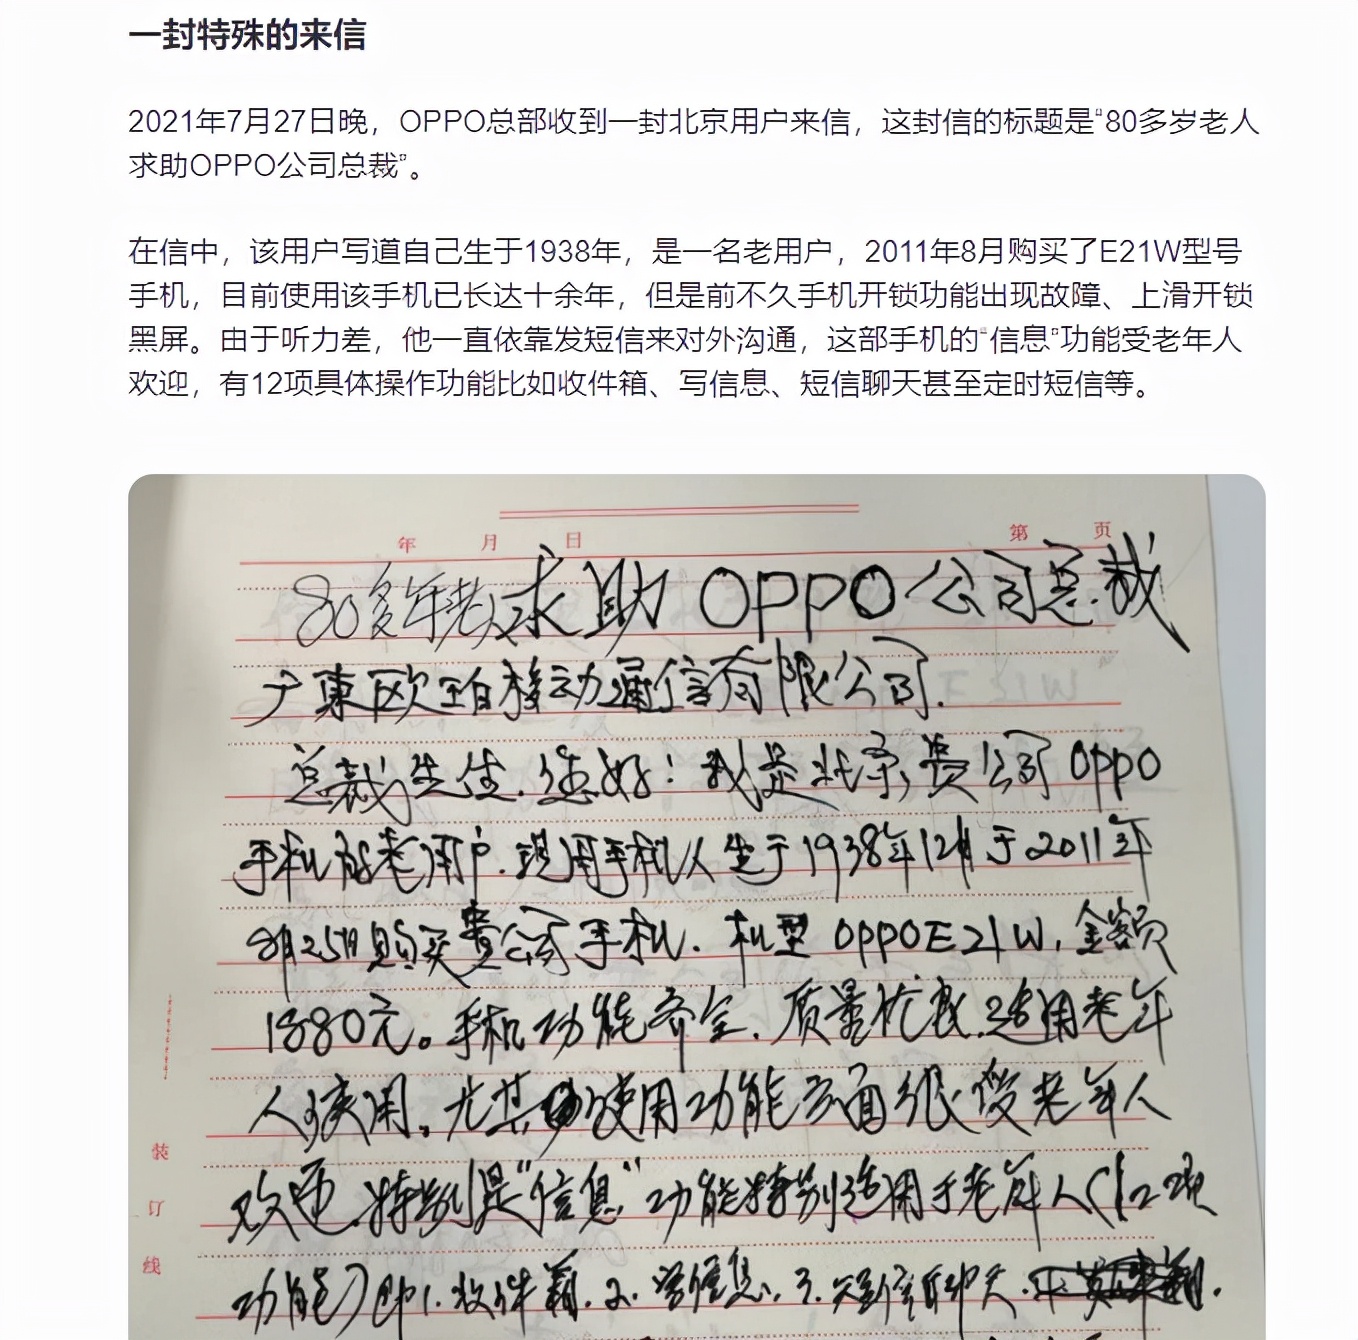 一封特殊的来信
2021年7月27日晚，OPPO总部收到一封北京用户来信，这封信的标题是“80多岁老人
求助OPPO公司总裁”。
在信中，该用户写道自己生于1938年，是一名老用户，2011年8月购买了E21W型号
手机，目前使用该手机已长达十余年，但是前不久手机开锁功能出现故障、上滑开锁
黑屏。由于听力差，他一直依靠发短信来对外沟通，这部手机的“信息”功能受老年人
欢迎，有12项具体操作功能比如收件箱、写信息、短信聊天甚至定时短信等。
年 月 日 第 页
80多年老人求助OPPO公司总裁
广東欧珀移动通信有限公司.
总裁先生.您好！我是北京,贵公司OPPO
手机的老用户.现用手机人生于1938年12月于2011年
8月25日购买贵公司手机.机型OPPOE21W,金额
1880元。手机功能齐全.质量优良.适用老年
人使用。尤其使用功能方面很受老年人
欢迎.特别是“信息”功能特别适用于老年人(12项
功能)即1.收件箱.2.写信息.3.短信聊天.
装
订
线